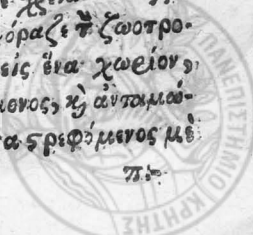 όραζε τ̃ ζωοτρο-
εἰς ἕνα χωρίον,
μενος, κ̀ ἀνταμώ-
α στρεφόμενος μὲ
π:-
ΠΑΝΕΠΙΣΤΗΜΙΟ ΚΡΗΤΗΣ